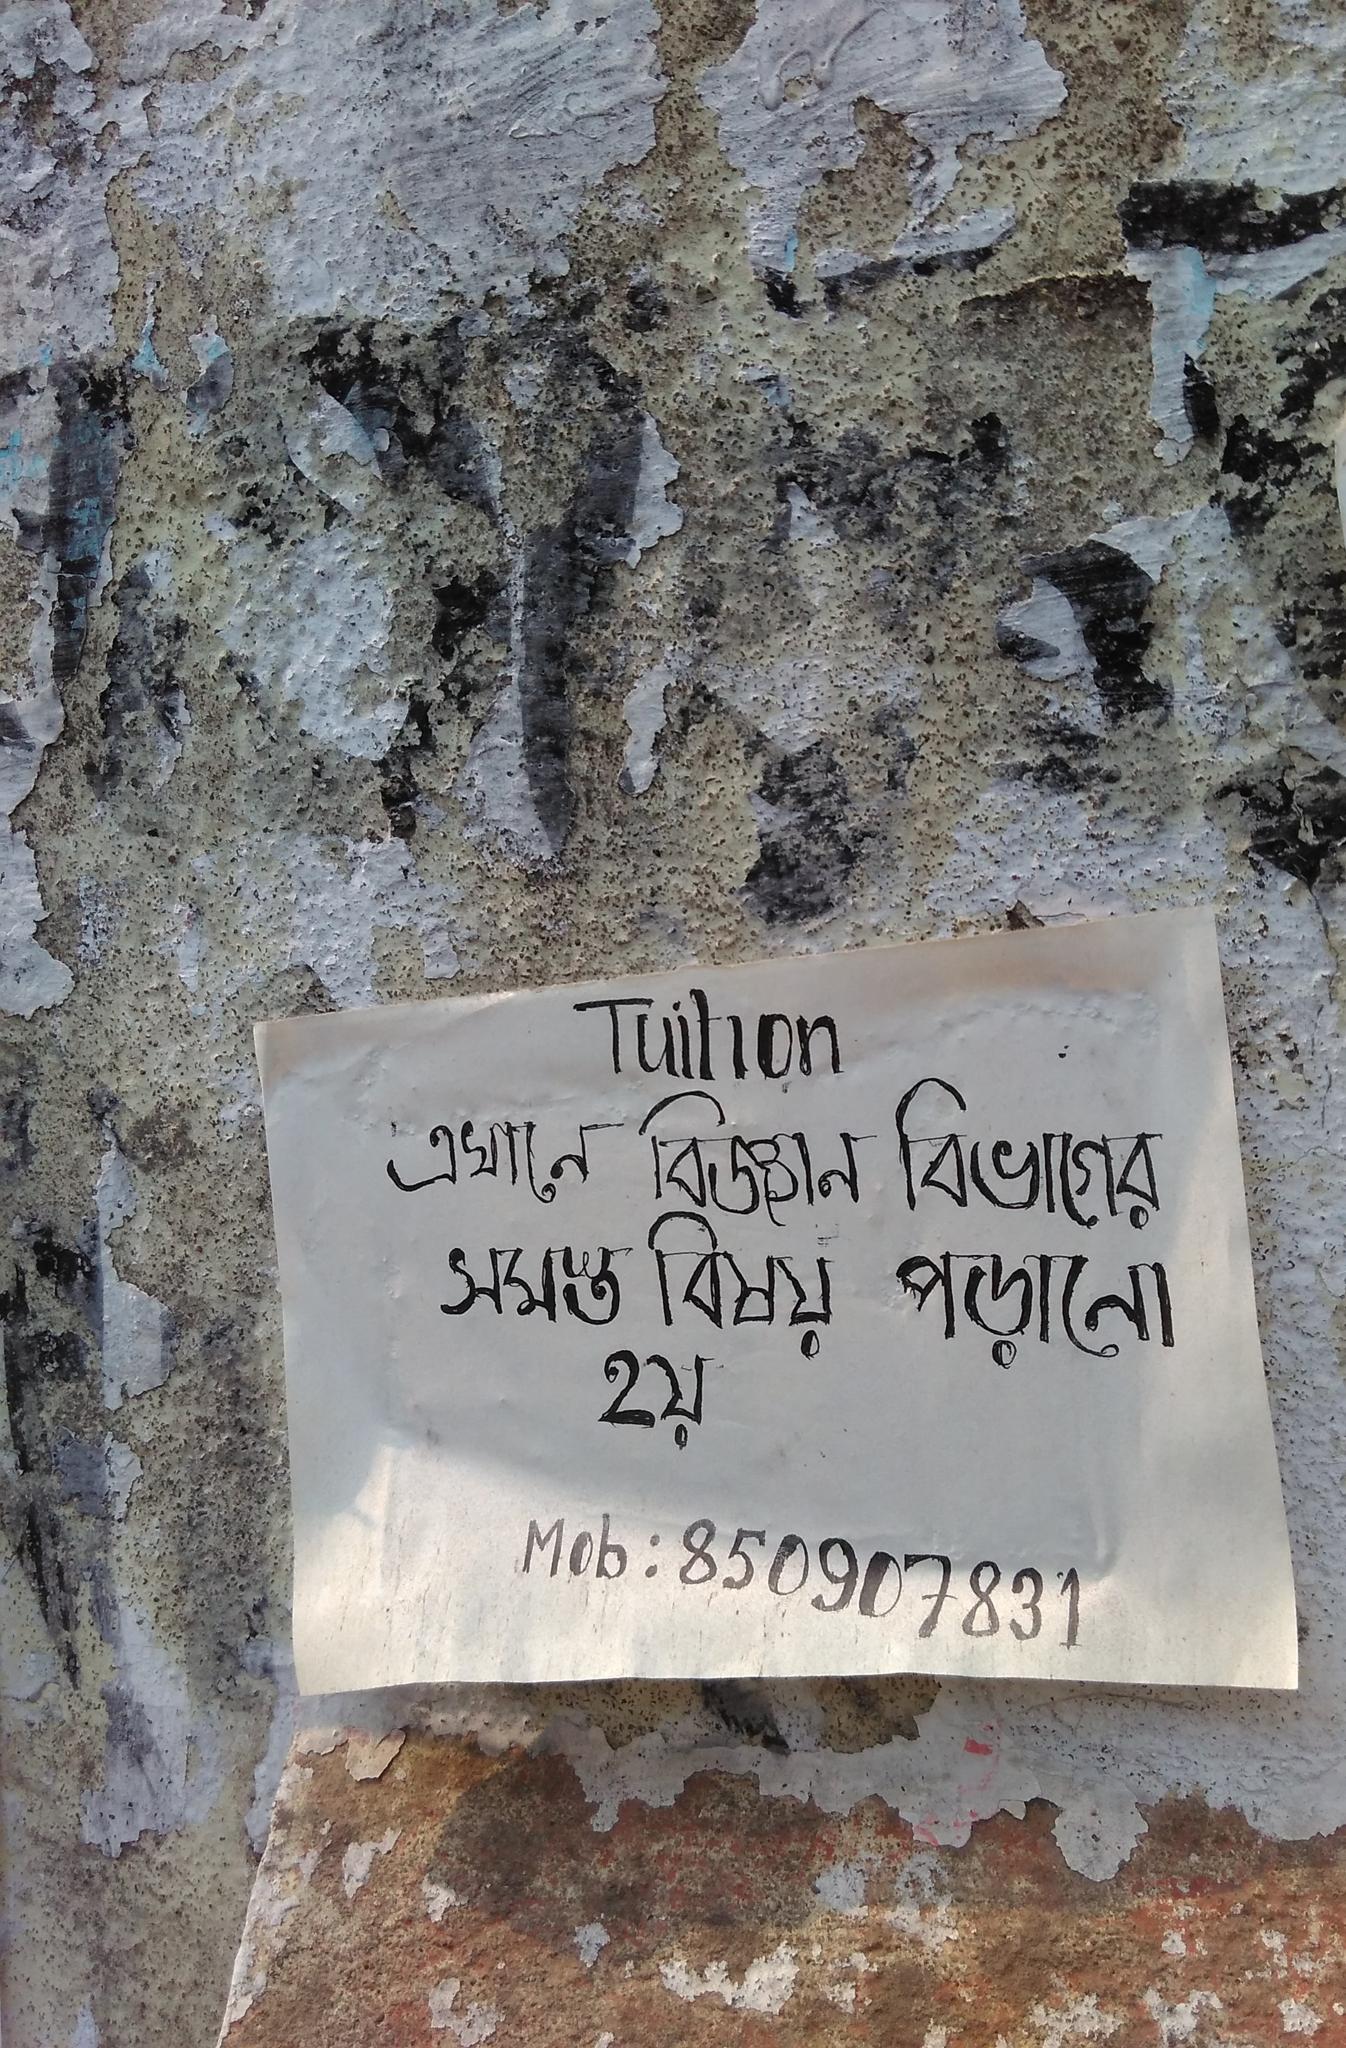 Tuition
এখানে বিজ্ঞান বিভাগের
সমস্ত বিষয় পড়ানো
হয়
Mob: 850907831